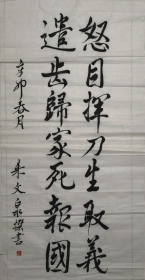 怒目挥刀生取義
遣齿歸家死報國
辛卯春月
朱文泉撰书